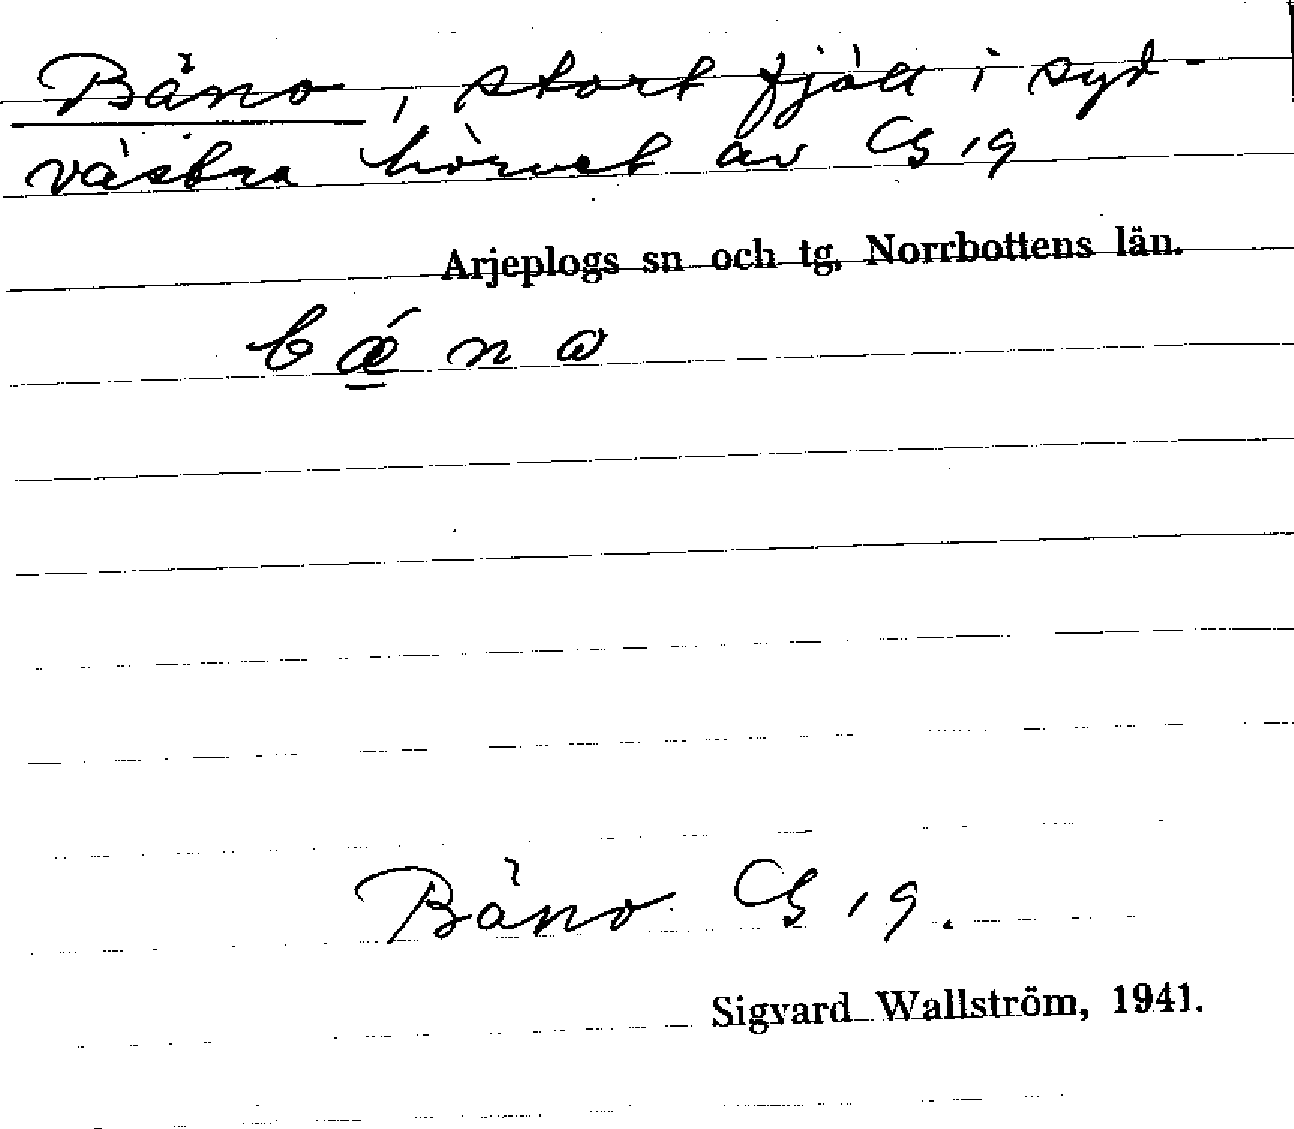 Bäno, stort fjäll i syd-
västra hörnet av G 19
Arjeplogs sn och tg, Norrbottens län.
b ǽ n ɷ
Bäno G 19.
Sigvard Wallström, 1941.